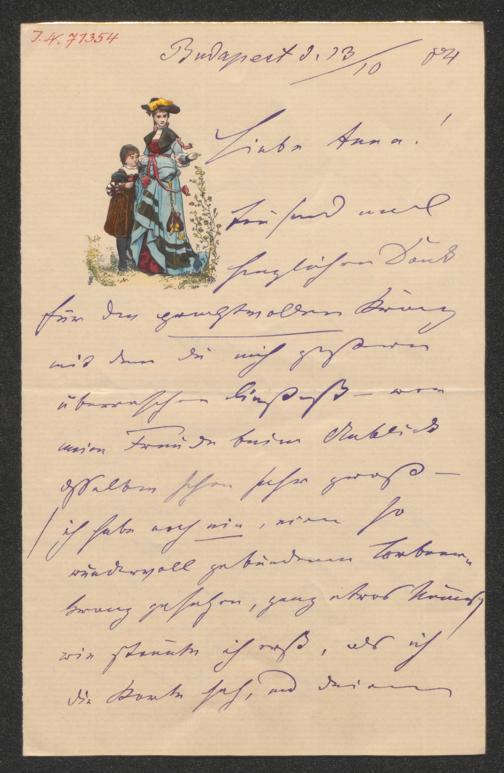 J.N. 71354
Budapest d. 13/10 84
Liebe Anna!
Tausend mal
herzlichen Dank
für den prachtvollen Kranz
mit dem du mich gestern
überraschen ließest – war
meine Freude beim Anblick
desselben schon sehr groß –
ich habe noch nie, einen so
wundervoll gebundenen Lorbeer-
kranz gesehen, ganz etwas
wie staunte ich erst, als ich
die Karte sah, und deinen